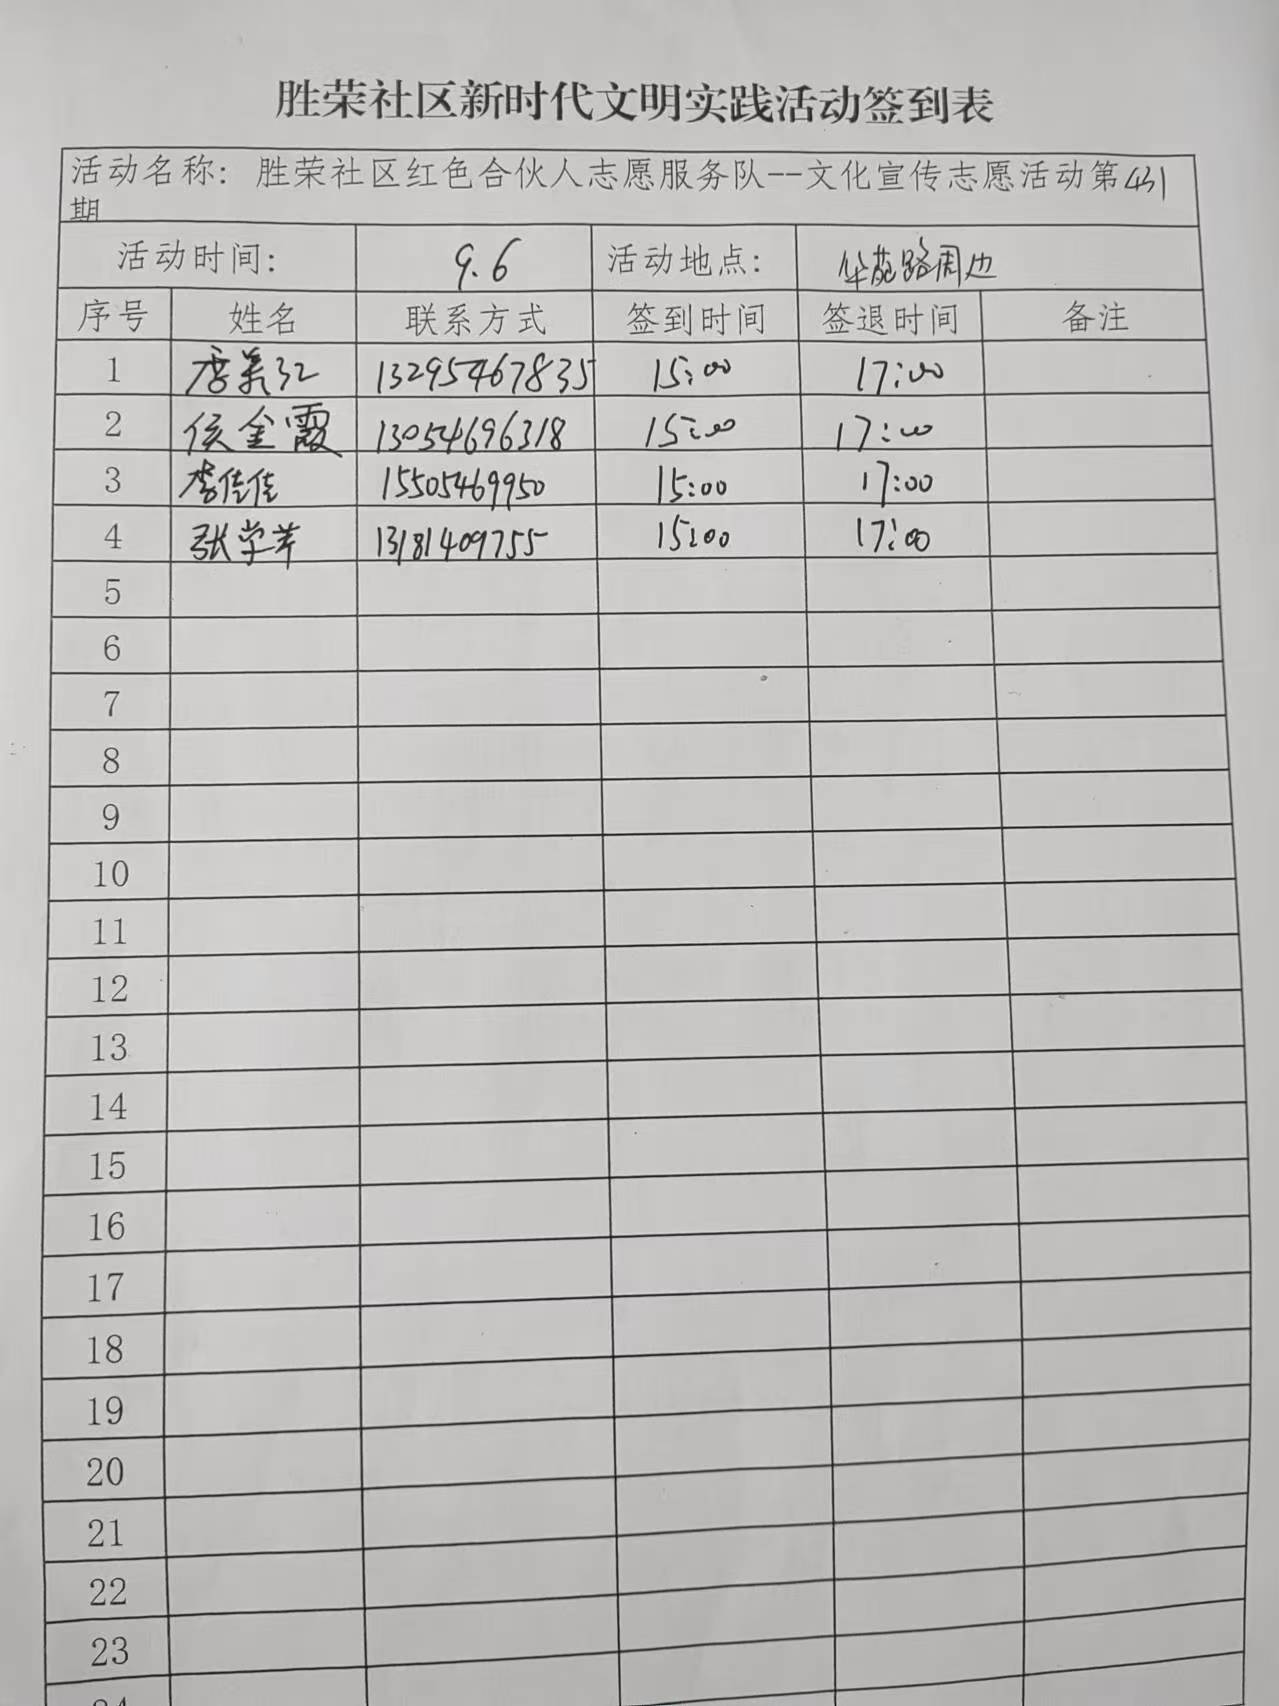 胜荣社区新时代文明实践活动签到表
活动名称：胜荣社区红色合伙人志愿服务队--文化宣传志愿活动第431
期
活动时间： 9.6 活动地点： 华苑路周边
序号 姓名 联系方式 签到时间 签退时间 备注
1 13295467835 15:00 17:00
2 侯金霞 13054696318 15:00 17:00
3 李佳佳 15505469950 15:00 17:00
4 张学苹 13181409755 15:00 17:00
5
6
7
8
9
10
11
12
13
14
15
16
17
18
19
20
21
22
23
24